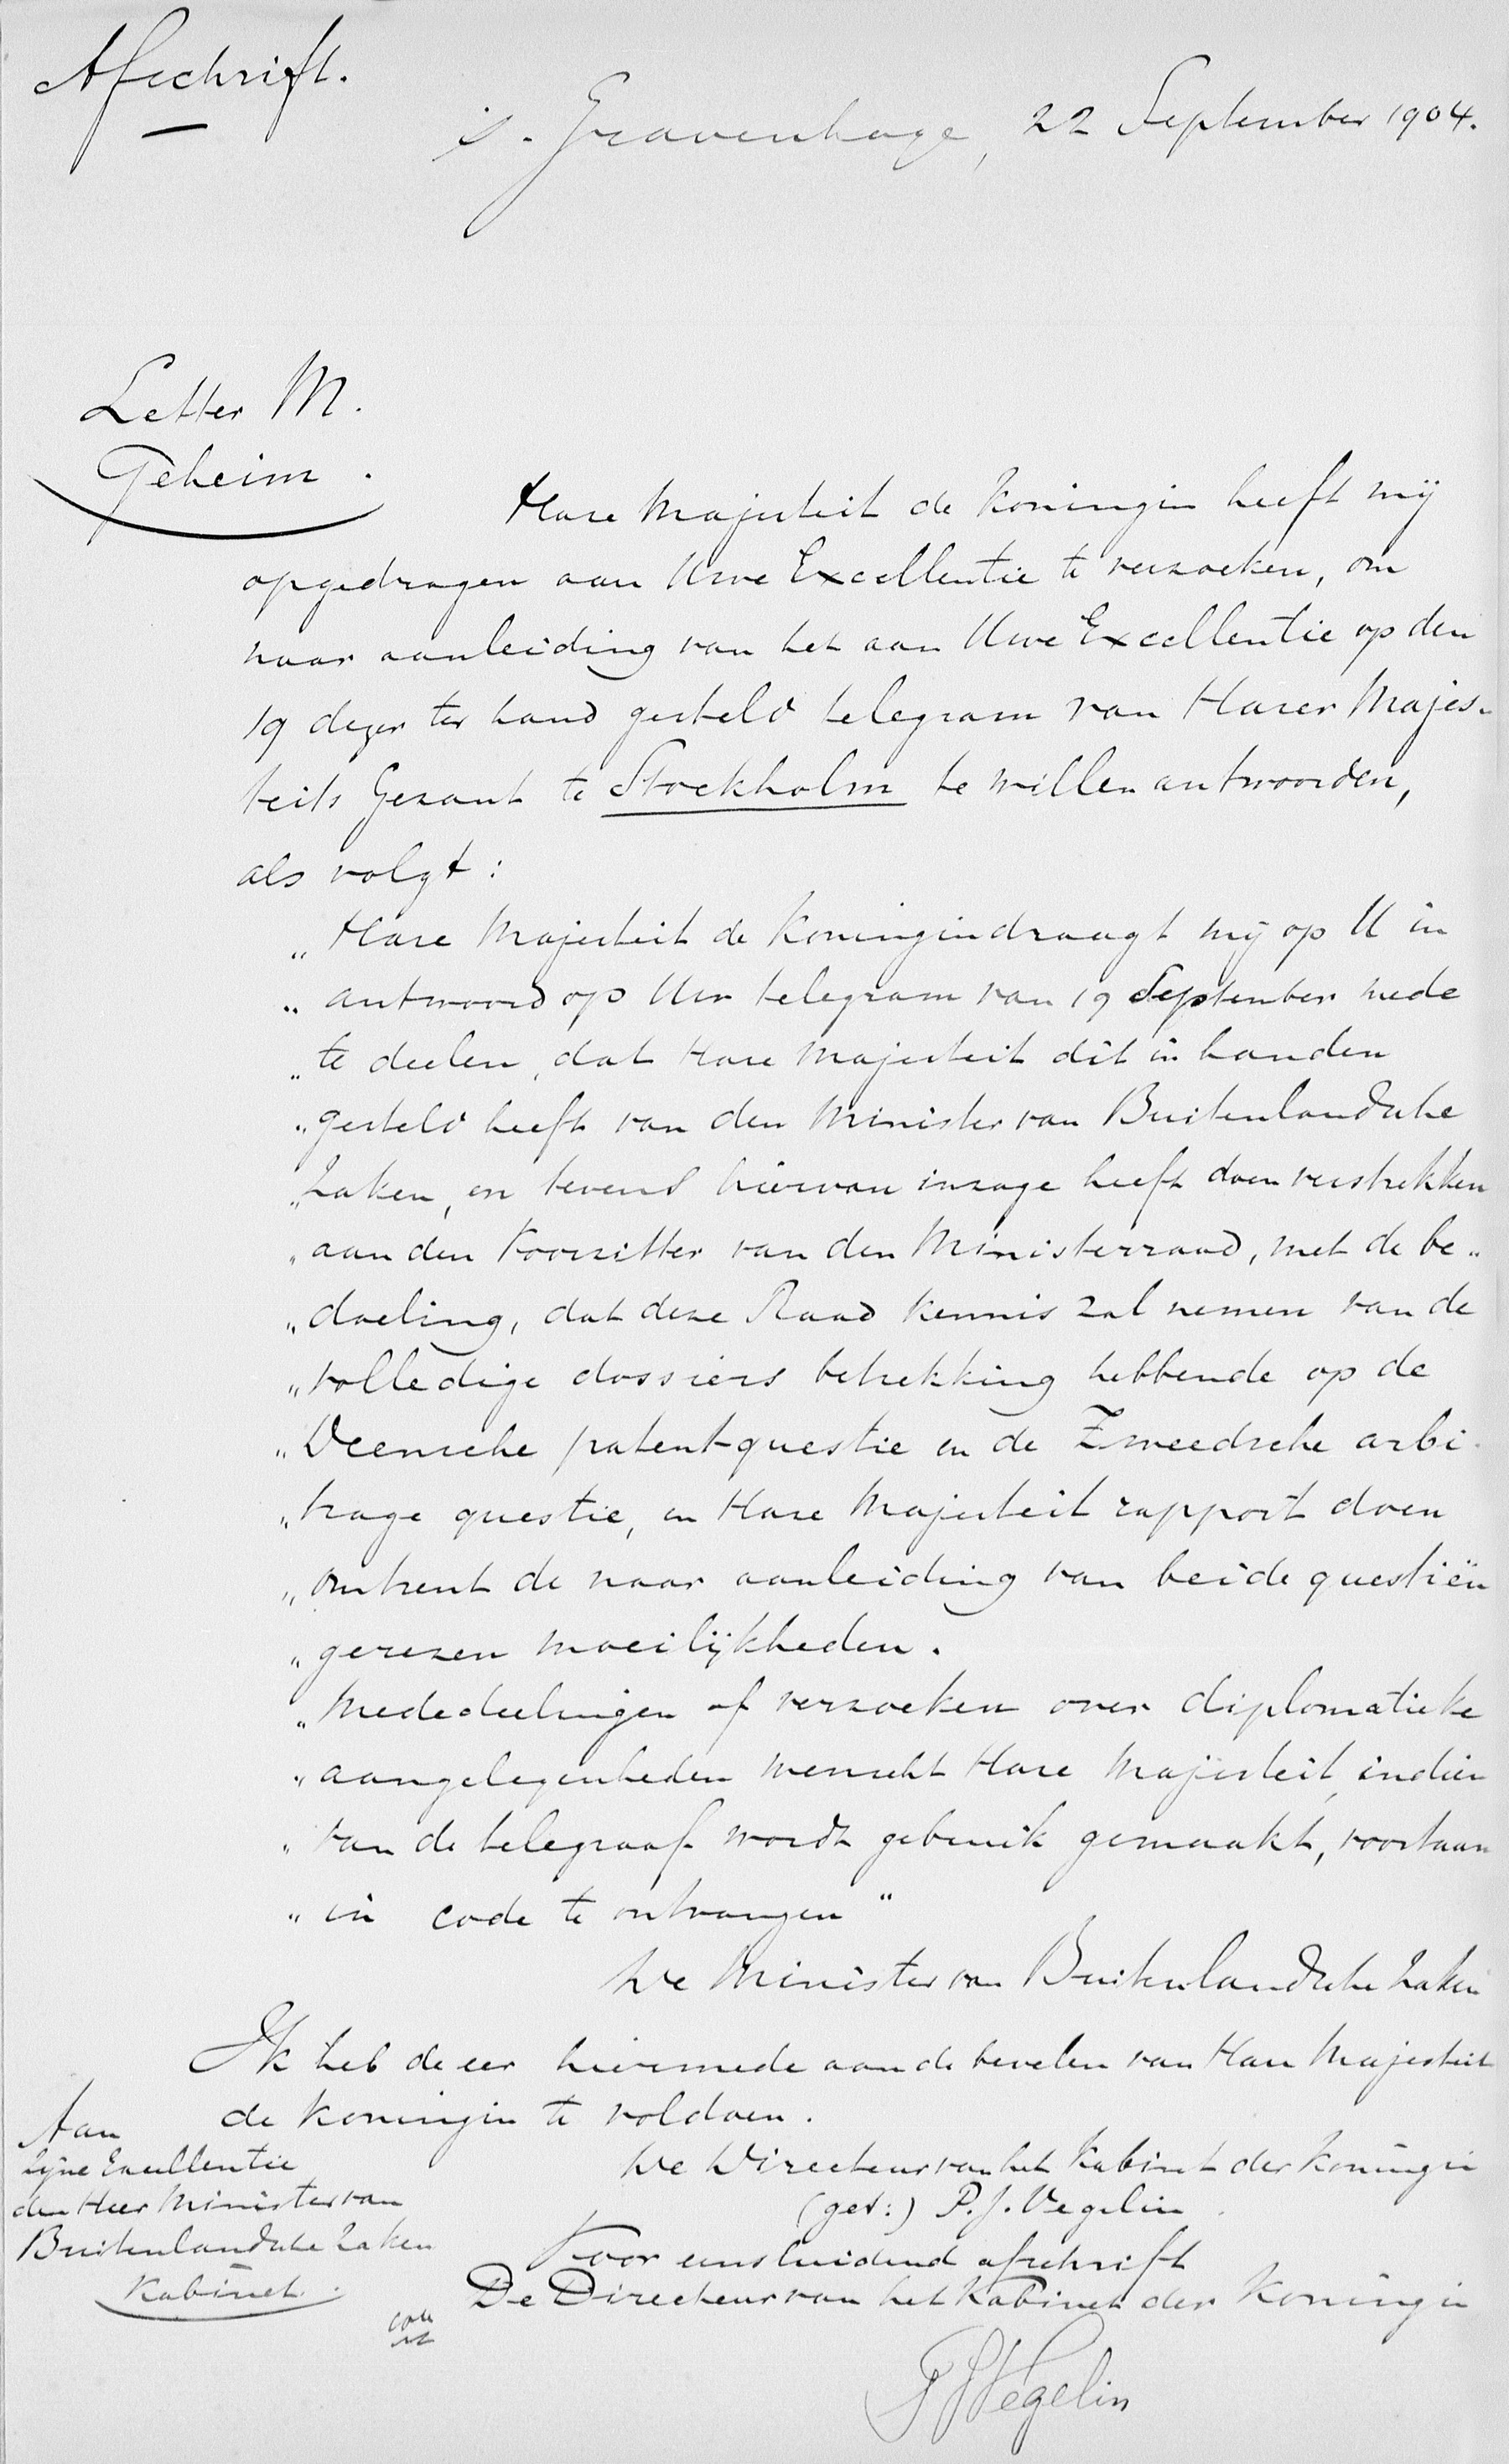 Afschrift.
's-Gravenhage, 22 September 1904.
Letter M.
Geheim.
Hare Majesteit de Koningin heeft mij
opgedragen aan Uwe Excellentie te verzoeken, om
naar aanleiding van het aan Uwe Excellentie op den
19 dezer ter hand gesteld telegram van Harer Majes-
teits Gezant te Stockholm te willen antwoorden,
als volgt:
„Hare Majesteit de Koningin draagt mij op U in
„antwoord op Uw telegram van 19 September mede
„te deelen, dat Hare Majesteit dit in handen
„gesteld heeft van den Minister van Buitenlandsche
„Zaken, en tevens hiervan inzage heeft doen verstrekken
„aan den Voorzitter van den Ministerraad, met de be-
„doeling, dat deze Raad kennis zal nemen van de
„volledige dossiers betrekking hebbende op de
„Deensche patent-questie en de Zweedsche arbi-
„trage questie, en Hare Majesteit rapport doen
„omtrent de naar aanleiding van beide questiën
„gerezen moeilijkheden.
„Mededeelingen of verzoeken over diplomatieke
„aangelegenheden wenscht Hare Majesteit, indien
„van de telegraaf wordt gebruik gemaakt, voortaan
„in code te ontvangen"
De Minister van Buitenlandsche Zaken
Ik heb de eer hiermede aan de bevelen van Hare Majesteit
de Koningin te voldoen.
De Directeur van het Kabinet der Koningin
(get:) P.J. Vegelin.
Aan
Zijne Excellentie
den Heer Minister van
Buitenlandsche Zaken
Kabinet.
Voor eensluidend afschrift
De Directeur van het Kabinet der Koningin
coll
PJVegelin